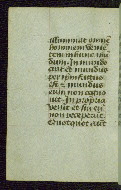 illuminat omnē
hominem venie
tem in hunc mū
dum. In mundo
erat et mundus
per ipm̄ factus
est et mundus
eum non cogno
uit. In propria
venit et sui eū
non receperūt.
Quotquot aut